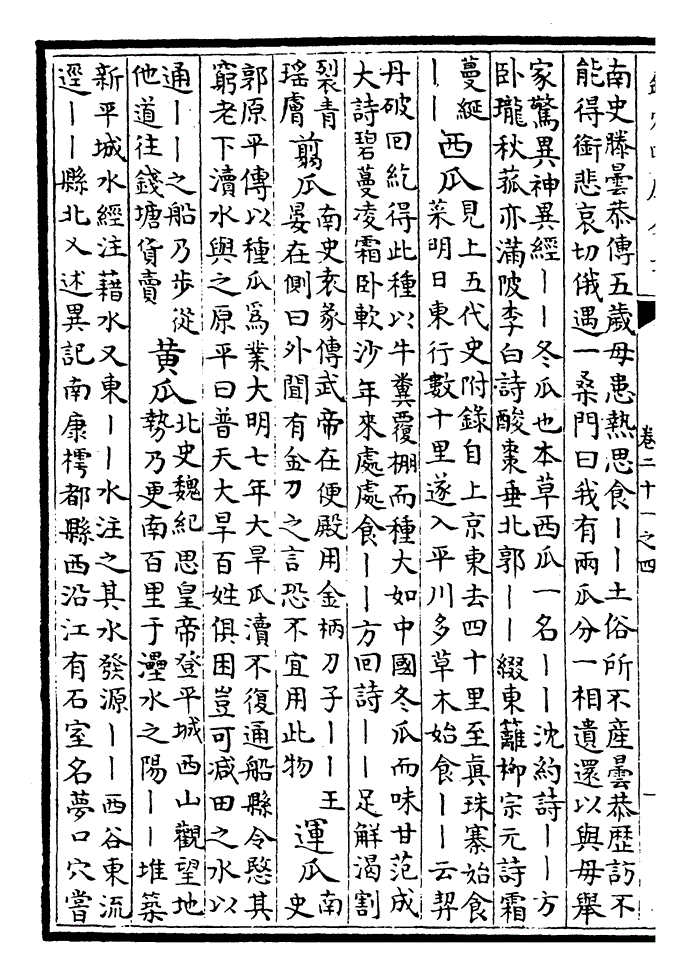 卷二十一之四
南史滕曇恭傳五歲母患熱思食丨丨土俗所不産曇恭歷訪不
能得銜悲哀切俄遇一桑門曰我有兩瓜分一相遺還以與母舉
家驚異神異經丨丨冬瓜也本草西瓜一名丨丨沈約詩丨丨方
卧瓏秋菰亦滿陂李白詩酸棗垂北郭丨丨綴東籬柳宗元詩霜
蔓綖
丨丨
西瓜
見上五代史附錄自上京東去四十里至真珠寨始食
菜明日東行數十里遂入平川多草木始食丨丨云契
丹破回紇得此種以牛糞覆棚而種大如中國冬瓜而味甘范成
大詩碧蔓凌霜卧軟沙年來處處食丨丨方回詩丨丨足解渴割
裂青
瑶膚
翦瓜
南史袁彖傳武帝在便殿用金柄刀子丨丨王
晏在側曰外聞有金刀之言恐不宜用此物
運瓜
南
史
郭原平傳以種瓜爲業大明七年大旱瓜瀆不復通船縣令愍其
窮老下瀆水與之原平曰普天大旱百姓俱困豈可減田之水以
通丨丨之船乃步從
他道往錢塘貨賣
黄瓜
北史魏紀思皇帝登平城西山觀望地
勢乃更南百里于灅水之陽丨丨堆築
新平城水經注藉水又東丨丨水注之其水發源丨丨西谷東流
逕丨丨縣北又述異記南康樗都縣西沿江有石室名夢口穴嘗